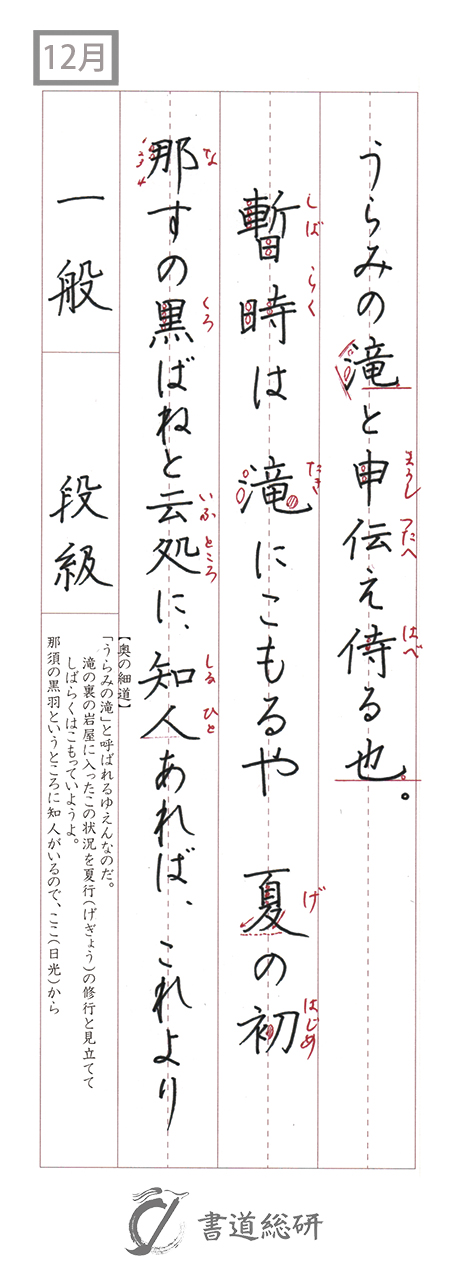 12月
うらみの滝と申伝え侍る也。
まうし
つたへ
はべ
暫時は 滝にこもるや 夏の初
しば
らく
たき
げ
はじめ
那すの黒ばねと云処に、知人あれば、これより
な
くろ
いふ
ところ
しる
ひと
一般 段級
【奥の細道】
「うらみの滝」と呼ばれるゆえんなのだ。
滝の裏の岩屋に入ったこの状況を夏行(げぎょう)の修行と見立てて
しばらくはこもっていようよ。
那須の黒羽というところに知人がいるので、ここ(日光)から
書道総研